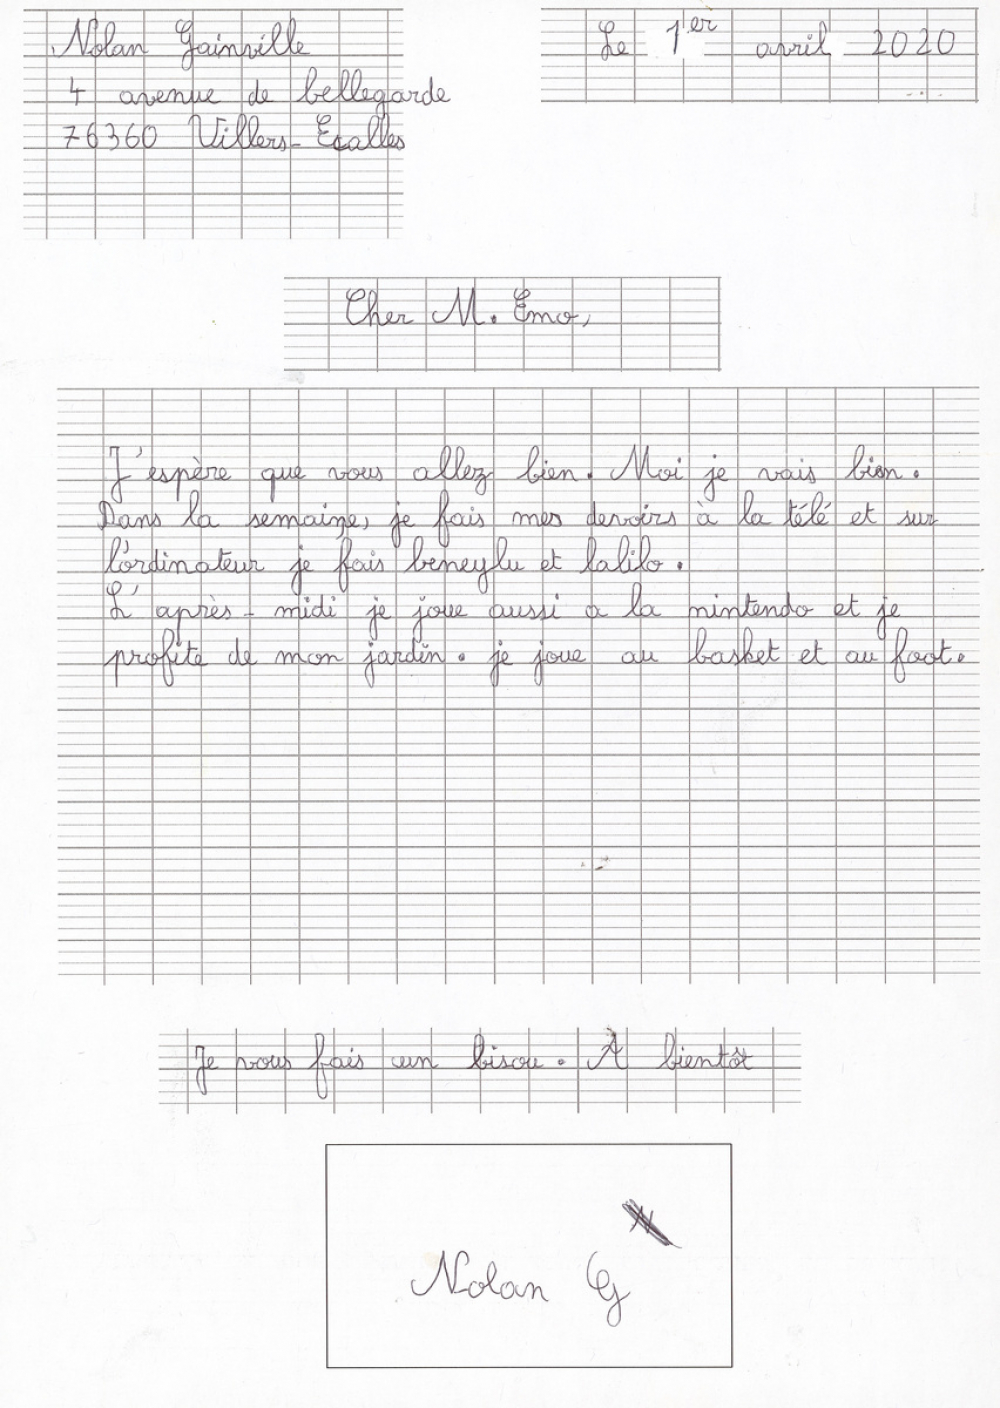 Nolan Gainville
Le 1er avril 2020
4 avenue de bellegarde
76360 Villers-Ecalles
Cher M. Emo,
J'espère que vous allez bien. Moi je vais bien.
Dans la semaine, je fais mes devoirs à la télé et sur
l'ordinateur je fais beneylu et lalilo.
L'après-midi je joue aussi a la nintendo et je
profite de mon jardin. je joue au basket et au foot.
Je vous fais un bisou. À bientôt
Nolan G